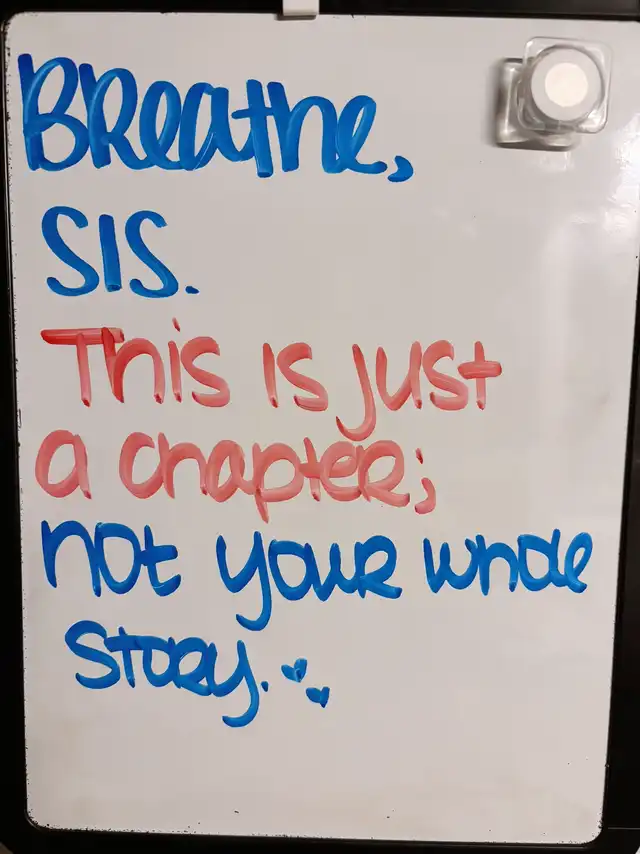 Breathe,
SIS.
This is just
a chapter;
not your whole
story.